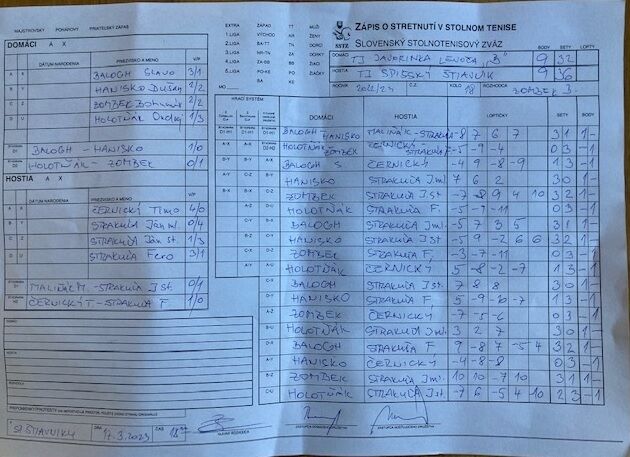 MAJSTROVSKÝ POHÁROVÝ PRIATEĽSKÝ ZÁPAS
DOMÁCI A X
DÁTUM NARODENIA PRIEZVISKO A MENO V/P
A X BALOGH SLAVO 3/1
B Y HANISKO DUŠAN 1/2
C Z ZOMBEK Bohumír 2/2
D U HOLOTŇÁK Ondrej 1/3
BALOGH - HANISKO 1/0
HOLOTŇÁK - ZOMBEK 0/1
HOSTIA A X
DÁTUM NARODENIA PRIEZVISKO A MENO V/P
A X ČERNICKÝ Timo 4/0
B Y STRAKUĽA Ján ml. 0/4
C Z STRAKUĽA Ján st. 1/3
D U STRAKUĽA Fero 3/1
MALIŇÁK M. - STRAKUĽA J st. 0/1
ČERNICKÝ T - STRAKUĽA F. 1/0
DOMÁCI
HOSTIA
ROZHODCA
EXTRA ZÁPAD TT MUŽI
1.LIGA VÝCHOD NR ŽENY
2.LIGA BA-TT TN DORCI
3.LIGA NR-TN ZA
4.LIGA ZA-BB BB ŽIACI
5.LIGA PO-KE KE ŽIAČKY
ZÁPIS O STRETNUTÍ V STOLNOM TENISE
SSTZ SLOVENSKÝ STOLNOTENISOVÝ ZVÄZ
BODY SETY LOPTY
DOMÁCI TJ JAVORINKA LEVOČA "B" 9 32
HOSTIA TJ SPIŠSKÝ ŠTIAVNIK 9 36
ROČNÍK 2022/23 Č.Z. KOLO 18 ROZHODCA ZOMBEK B.
HRACÍ SYSTÉM
DOMÁCI HOSTIA LOPTIČKY SETY BODY
BALOGH HANISKO MALIŇÁK - STRAKUĽA -8 7 6 7 3 1 1 -
HOLOTŇÁK ZOMBEK ČERNICKÝ STRAKUĽA F. -5 -9 -4 0 3 - 1
A-X BALOGH S. ČERNICKÝ -4 9 -8 -9 1 3 - 1
HANISKO STRAKUĽA J ml. 7 6 2 3 0 1 -
ZOMBEK STRAKUĽA J st. -7 -8 9 4 10 3 2 1 -
HOLOTŇÁK STRAKUĽA F. -5 -9 -11 0 3 - 1
BALOGH STRAKUĽA J ml. -5 7 3 5 3 1 1 -
HANISKO STRAKUĽA J st. -5 9 -2 6 6 3 2 1 -
ZOMBEK STRAKUĽA F. -3 -7 -11 0 3 - 1
HOLOTŇÁK ČERNICKÝ 5 -8 -2 -7 1 3 - 1
BALOGH STRAKUĽA J st. 7 8 8 3 0 1 -
HANISKO STRAKUĽA F. 5 -9 -6 -7 1 3 - 1
ZOMBEK ČERNICKÝ -7 -5 -6 0 3 - 1
HOLOTŇÁK STRAKUĽA J ml. 3 2 7 3 0 1 -
BALOGH STRAKUĽA F 9 -8 7 -5 4 3 2 1 -
HANISKO ČERNICKÝ -4 -8 -8 0 3 - 1
ZOMBEK STRAKUĽA J ml. 10 10 -7 10 3 1 1 -
HOLOTŇÁK STRAKUĽA J st. -7 6 -5 4 -10 2 3 - 1
DŇA 17.3.2023 ČAS 18
HLAVNÝ ROZHODCA
ZÁSTUPCA DOMÁCEHO DRUŽSTVA
ZÁSTUPCA HOSŤUJÚCEHO DRUŽSTVA